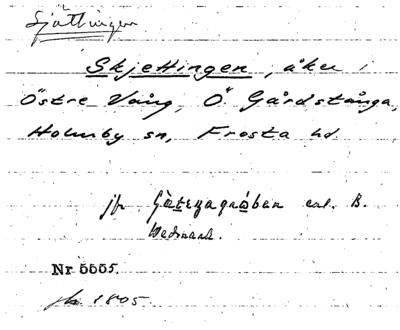 Sjättingen
Skjettingen, åker i
Östre Vång, Ö. Gårdstånga,
Holmby sn, Frosta hd.
jfr Gåtezagråban enl. B.
Hedmark.
Nr 5555.
1805.